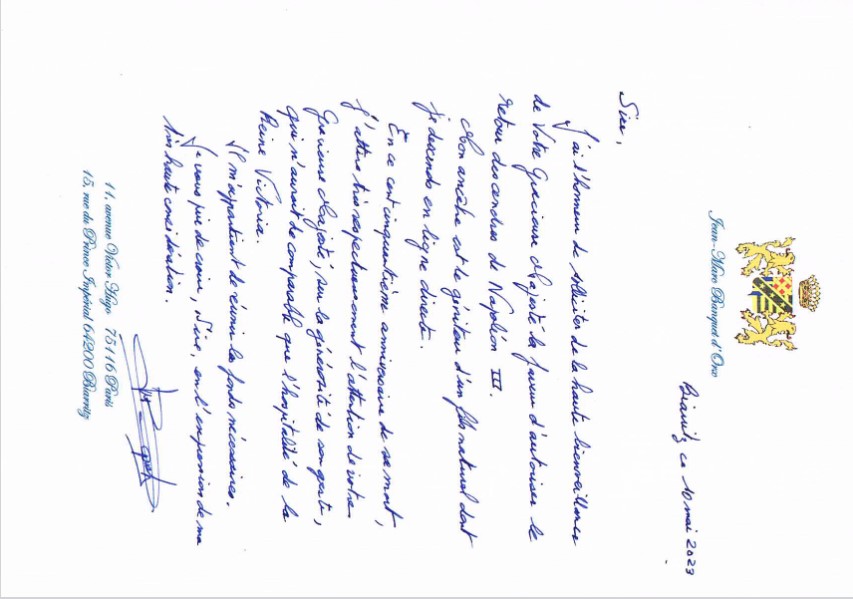 Jean-Marc Banquet d'Orx
Biarritz ce 10 mai 2023
Sire,
J'ai l'honneur de solliciter de la haute bienveillance
de Votre Gracieuse Majesté la faveur d'autoriser le
retour des cendres de Napoléon III.
Mon ancêtre est le géniteur d'un fils naturel dont
je descends en ligne directe.
En ce cent cinquantième anniversaire de sa mort,
j'attire très respectueusement l'attention de votre
Gracieuse Majesté, sur la générosité de son geste,
qui n'aurait de comparable que l'hospitalité de la
Reine Victoria.
Il m'appartient de réunir les fonds nécessaires.
Je vous prie de croire, Sire, en l'expression de ma
très haute considération.
11, avenue Victor Hugo 75116 Paris
15, rue du Prince Impérial 64200 Biarritz